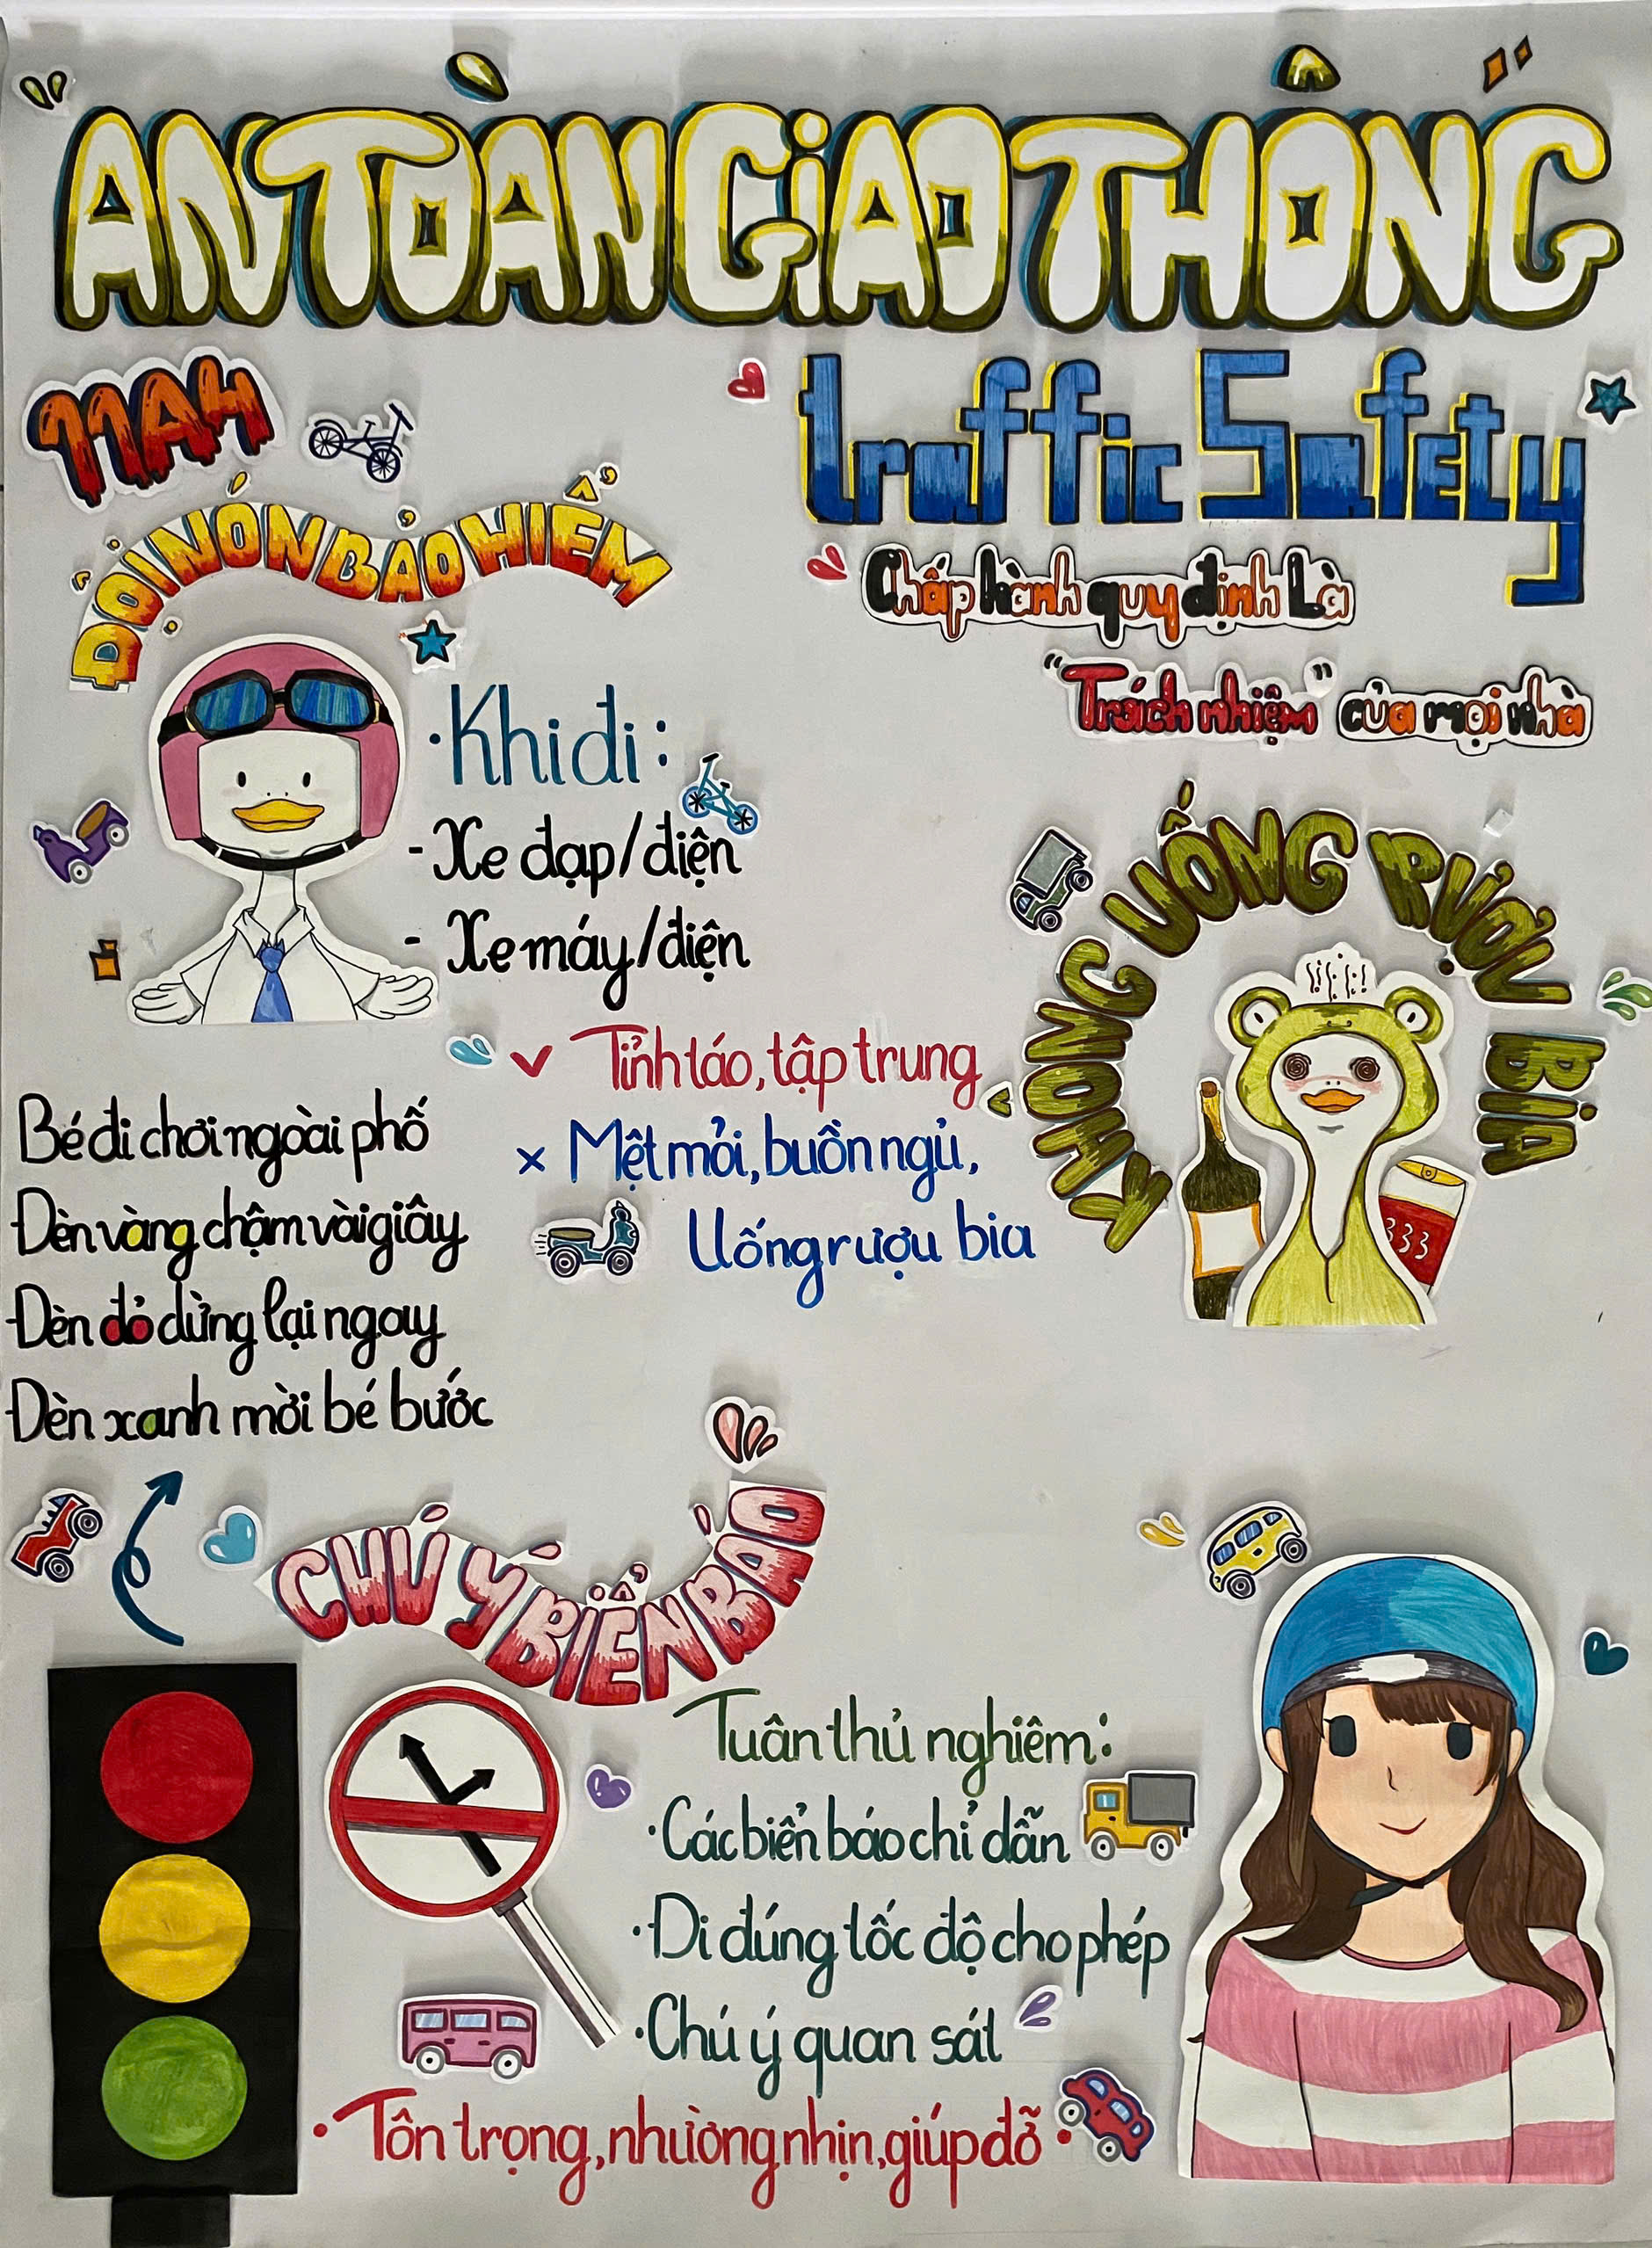 AN TOÀN GIAO THÔNG
11A4
traffic Safety
ĐỘI NÓN BẢO HIỂM
Chấp hành quy định Là
"Trách nhiệm" của mọi nhà
• Khi đi:
- Xe đạp/điện
- Xe máy/điện
KHÔNG UỐNG RƯỢU BIA
333
v Tỉnh táo, tập trung
x Mệt mỏi, buồn ngủ,
Uống rượu bia
Bé đi chơi ngoài phố
Đèn vàng chậm vài giây
Đèn đỏ dừng lại ngay
Đèn xanh mời bé bước
CHÚ Ý BIỂN BÁO
Tuân thủ nghiêm:
• Các biển báo chỉ dẫn
• Đi đúng tốc độ cho phép
• Chú ý quan sát
• Tôn trọng, nhường nhịn, giúp đỡ •